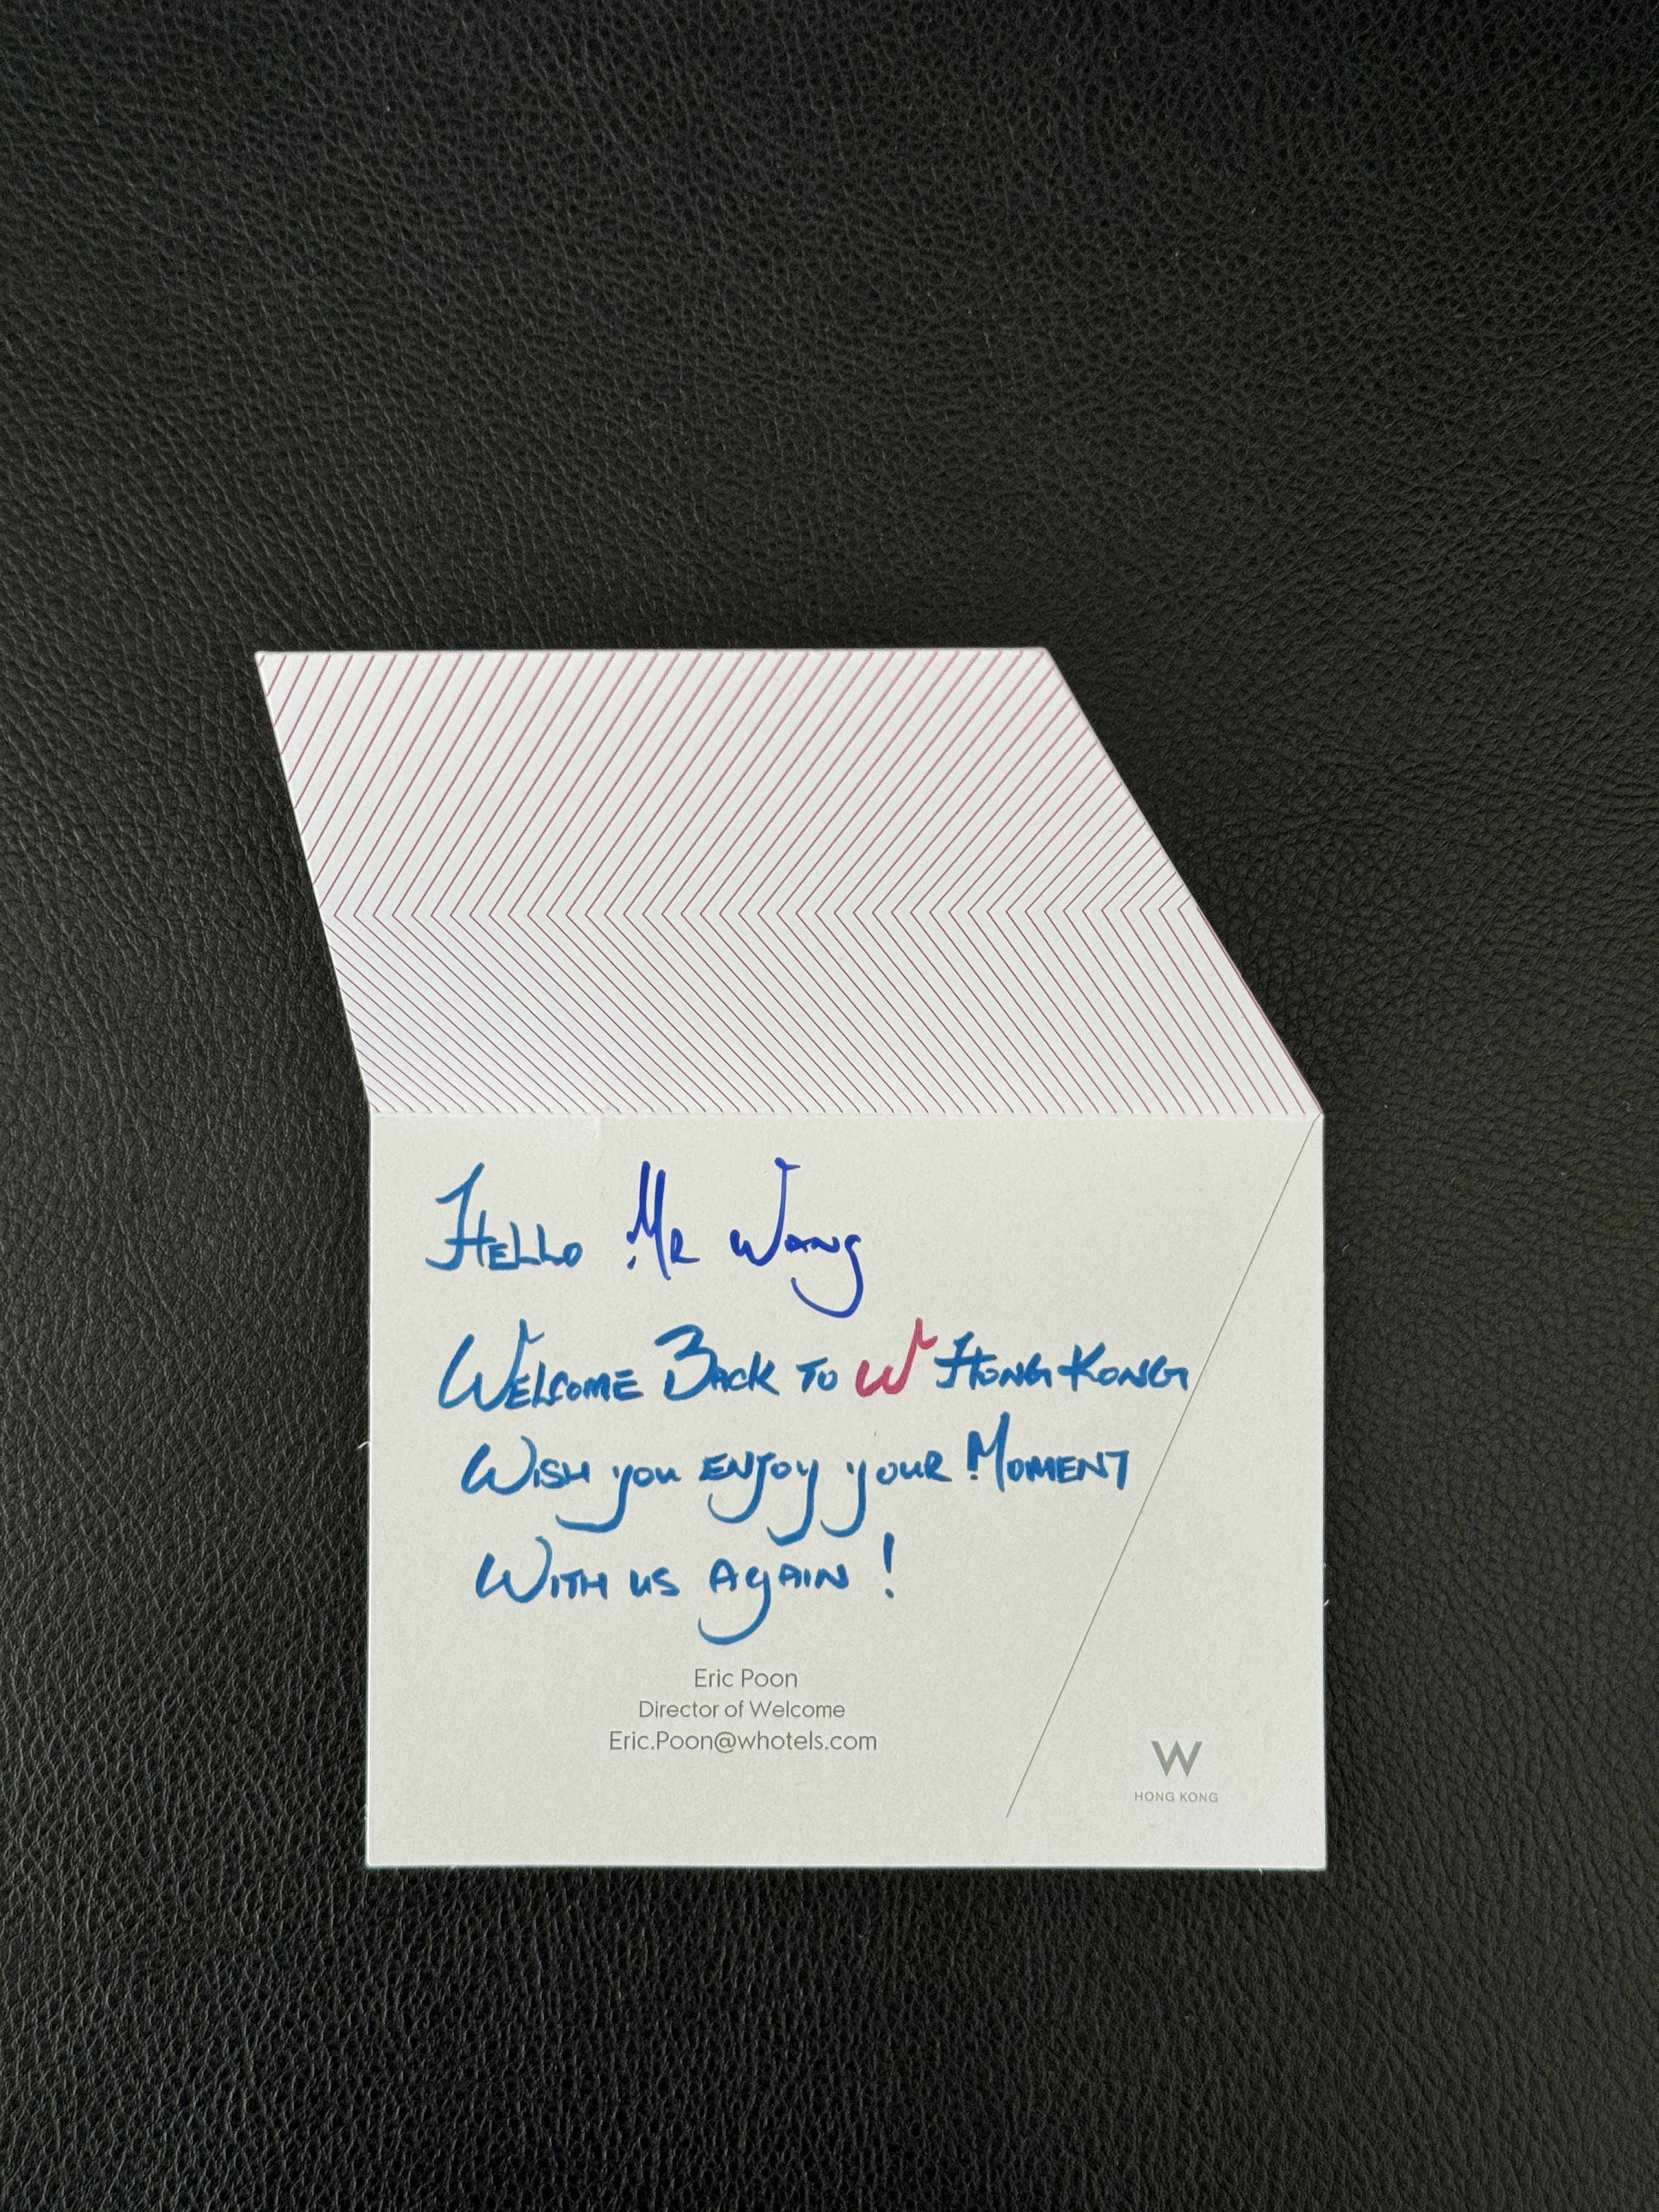 Hello Mr Wang
Welcome Back to W Hong Kong
Wish you enjoy your Moment
With us again!
Eric Poon
Director of Welcome
Eric.Poon@whotels.com
W
HONG KONG